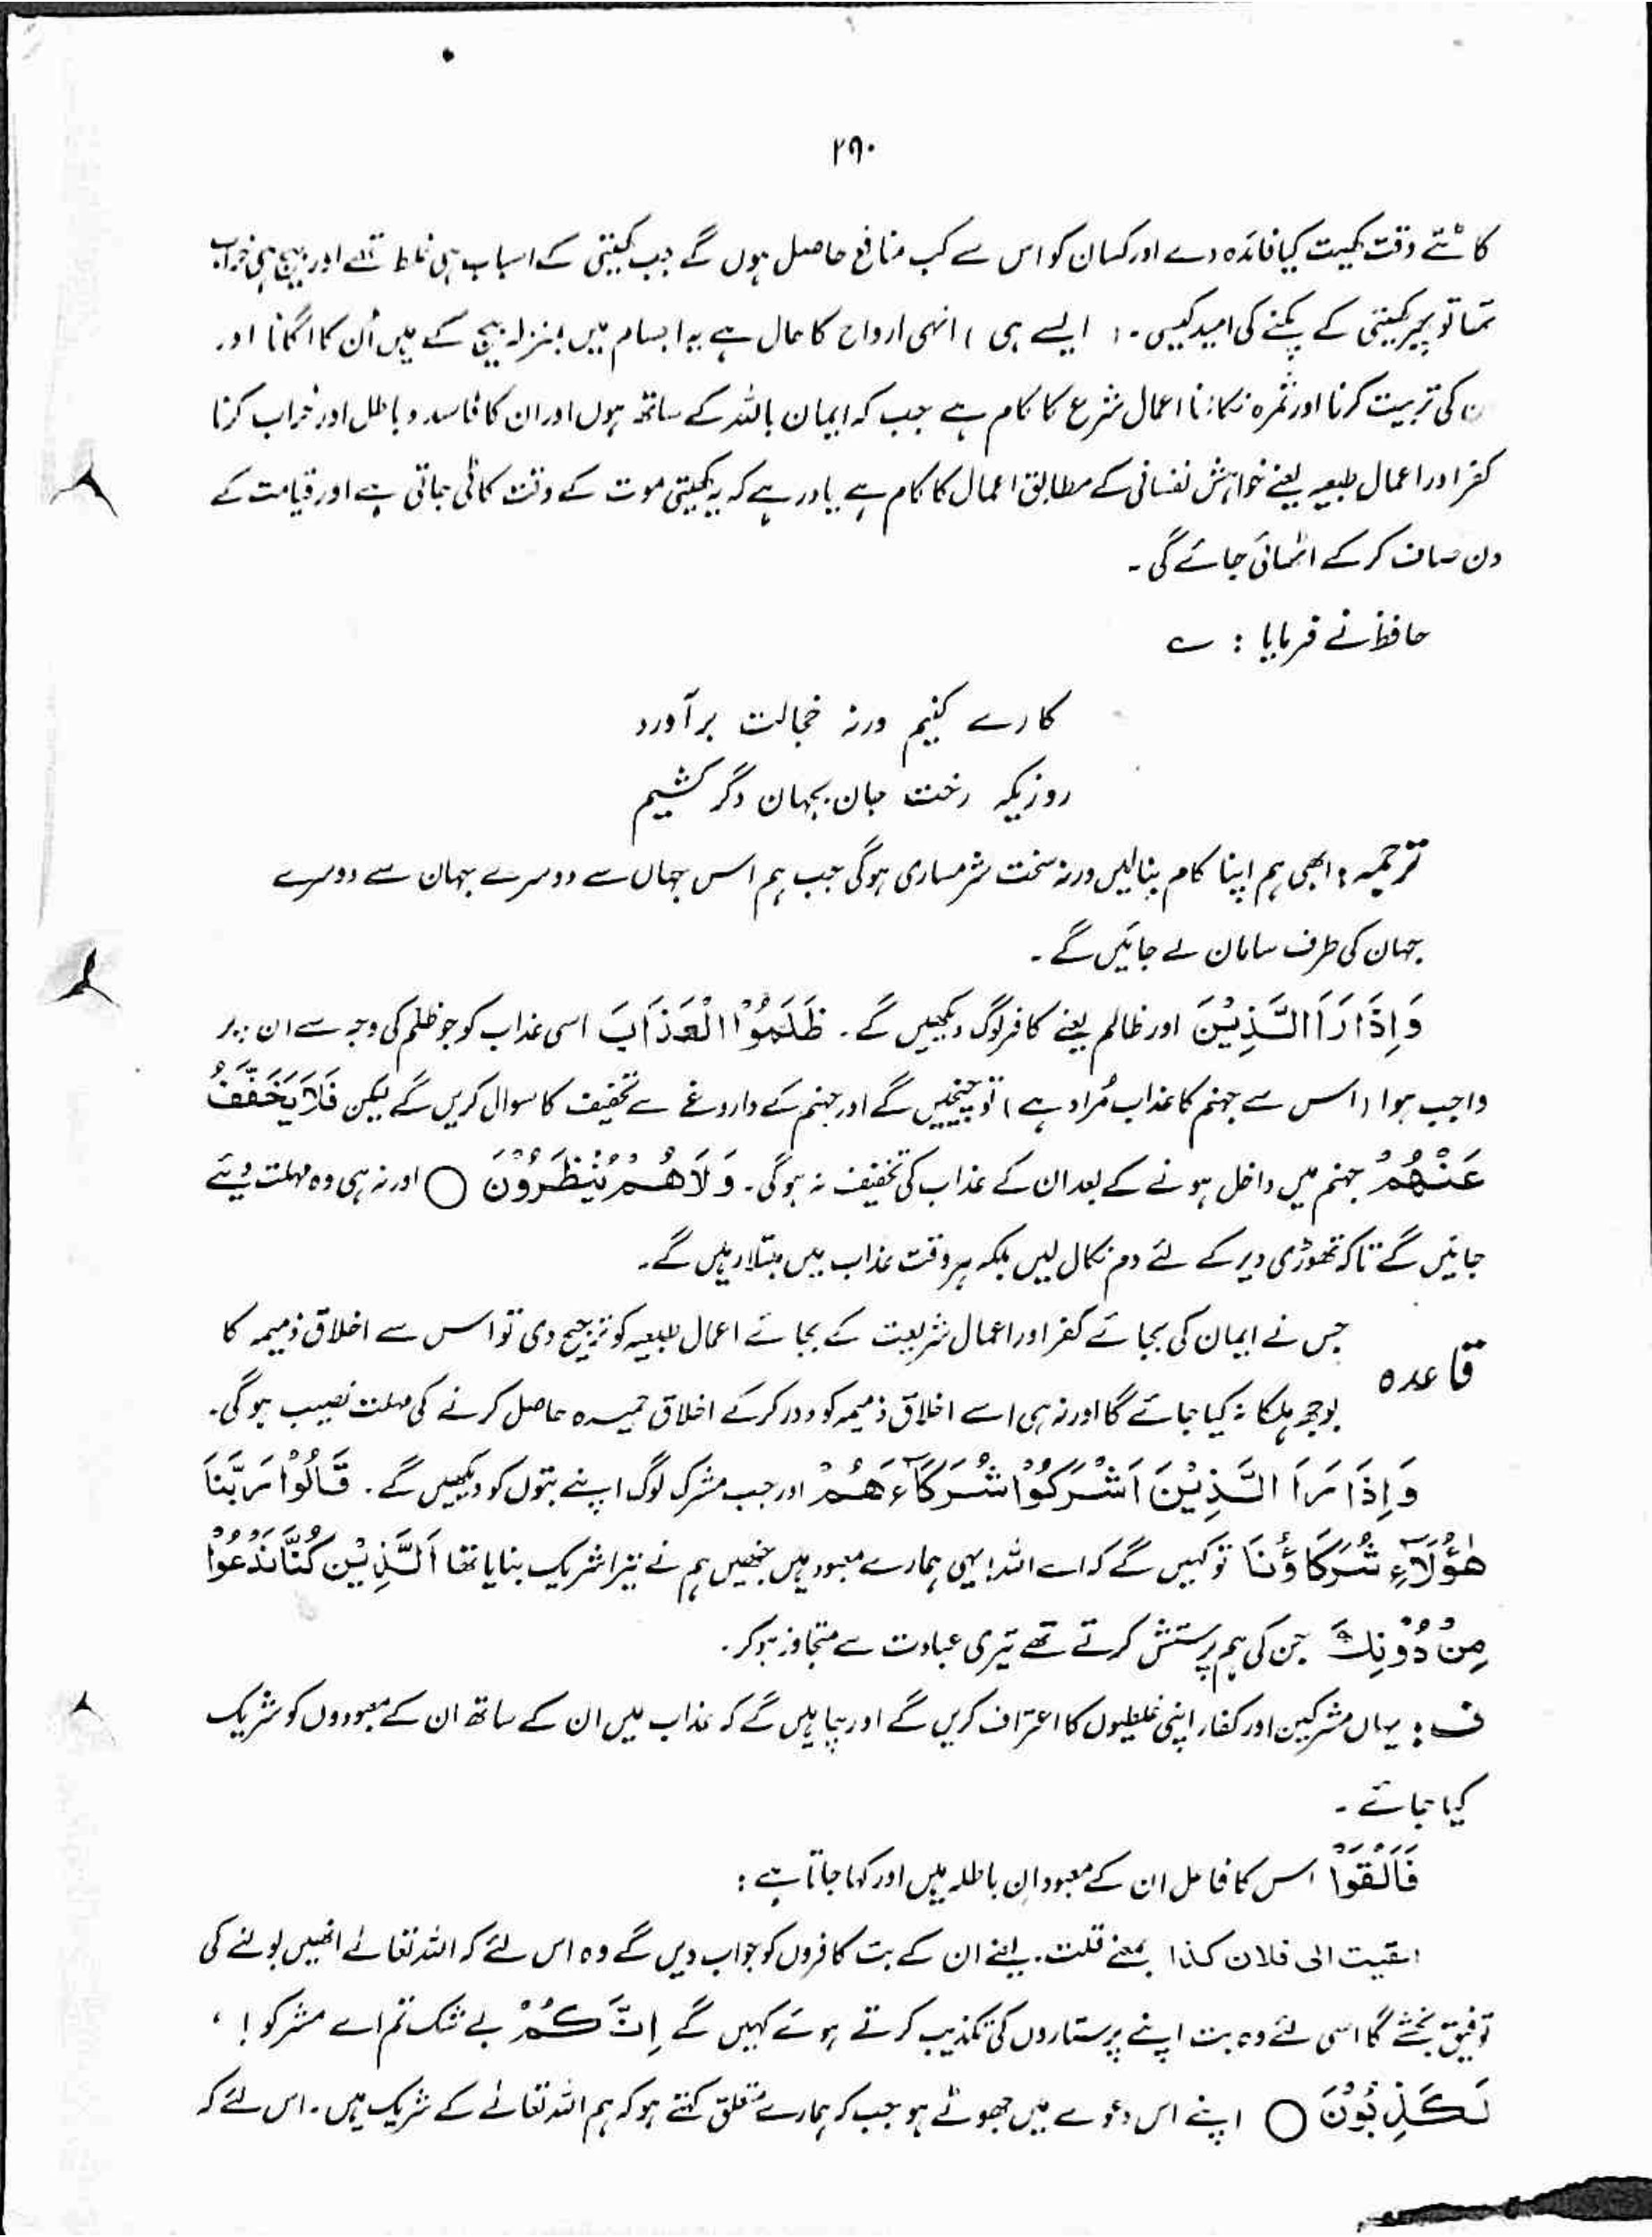 ۲۹۰
کاٹتے وقت کھیت کیا فائدہ دے اور کسان کو اس سے کب منافع حاصل ہوں گے جب کھیتی کے اسباب ہی غلط تھے اور بیج ہی خراب
تھا تو پھر کھیتی کے پکنے کی امید کیسی ۔ ( ایسے ہی ) انہی ارواح کا حال ہے یہ اجسام میں بمنزلہ بیج کے ہیں اُن کا اگانا اور
ن کی تربیت کرنا اور ثمرہ نکالنا اعمال شرع کا کام ہے جب کہ ایمان باللہ کے ساتھ ہوں اور ان کا فاسد و باطل اور خراب کرنا
کفر اور اعمال طبیعہ یعنے خواہش نفسانی کے مطابق اعمال کا کام ہے یاد رہے کہ یہ کھیتی موت کے وقت کاٹی جاتی ہے اور قیامت کے
دن صاف کر کے اٹھائی جائے گی ۔
حافظ نے فرمایا : ؎
کارے کنیم ورنہ خجالت برآورد
روزیکہ رخت جان بجہان دگر کشیم
ترجمہ : ابھی ہم اپنا کام بنالیں ورنہ سخت شرمساری ہوگی جب ہم اس جہاں سے دوسرے جہان سے دوسرے
جہان کی طرف سامان لے جائیں گے ۔
وَاِذَا رَاَ الَّذِیْنَ اور ظالم یعنے کافر لوگ دیکھیں گے ۔ ظَلَمُوا الْعَذَابَ اسی عذاب کو جو ظلم کی وجہ سے ان پر
واجب ہوا ( اس سے جہنم کا عذاب مُراد ہے ) تو چیخیں گے اور جہنم کے داروغے سے تخفیف کا سوال کریں گے لیکن فَلَا یُخَفَّفُ
عَنْهُمْ جہنم میں داخل ہونے کے بعد ان کے عذاب کی تخفیف نہ ہوگی ۔ وَلَا هُمْ یُنْظَرُوْنَ ○ اور نہ ہی وہ مہلت دیئے
جائیں گے تاکہ تھوڑی دیر کے لئے دم نکال لیں بلکہ ہر وقت عذاب میں مبتلا رہیں گے ۔
قاعدہ جس نے ایمان کی بجائے کفر اور اعمال شریعت کے بجائے اعمال طبیعہ کو ترجیح دی تو اس سے اخلاق ذمیمہ کا
بوجھ ہلکا نہ کیا جائے گا اور نہ ہی اسے اخلاق ذمیمہ کو دور کرکے اخلاق حمیدہ حاصل کرنے کی مہلت نصیب ہوگی ۔
وَاِذَا رَاَ الَّذِیْنَ اَشْرَكُوْا شُرَكَآءَهُمْ اور جب مشرک لوگ اپنے بتوں کو دیکھیں گے ۔ قَالُوْا رَبَّنَا
هٰۤؤُلَآءِ شُرَكَاؤُنَا تو کہیں گے کہ اے اللہ! یہی ہمارے معبود ہیں جنھیں ہم نے تیرا شریک بنایا تھا اَلَّذِیْنَ كُنَّا نَدْعُوْا
مِنْ دُوْنِكَ جن کی ہم پرستش کرتے تھے تیری عبادت سے متجاوز ہو کر ۔
ف : یہاں مشرکین اور کفار اپنی غلطیوں کا اعتراف کریں گے اور چاہیں گے کہ عذاب میں ان کے ساتھ ان کے معبودوں کو شریک
کیا جائے ۔
فَاَلْقَوْا اس کا فاعل ان کے معبودانِ باطلہ ہیں اور کہا جاتا ہے :
القیت الی فلان کذا بمعنے قلت ۔ یعنے ان کے بت کافروں کو جواب دیں گے وہ اس لئے کہ اللہ تعالےٰ انھیں بولنے کی
توفیق بخشے گا اسی لئے وہ بت اپنے پرستاروں کی تکذیب کرتے ہوئے کہیں گے اِنَّكُمْ بے شک تم اے مشرکو ! ،
لَكٰذِبُوْنَ ○ اپنے اس دعوے میں جھوٹے ہو جب کہ ہمارے متعلق کہتے ہو کہ ہم اللہ تعالےٰ کے شریک ہیں ۔ اس لئے کہ